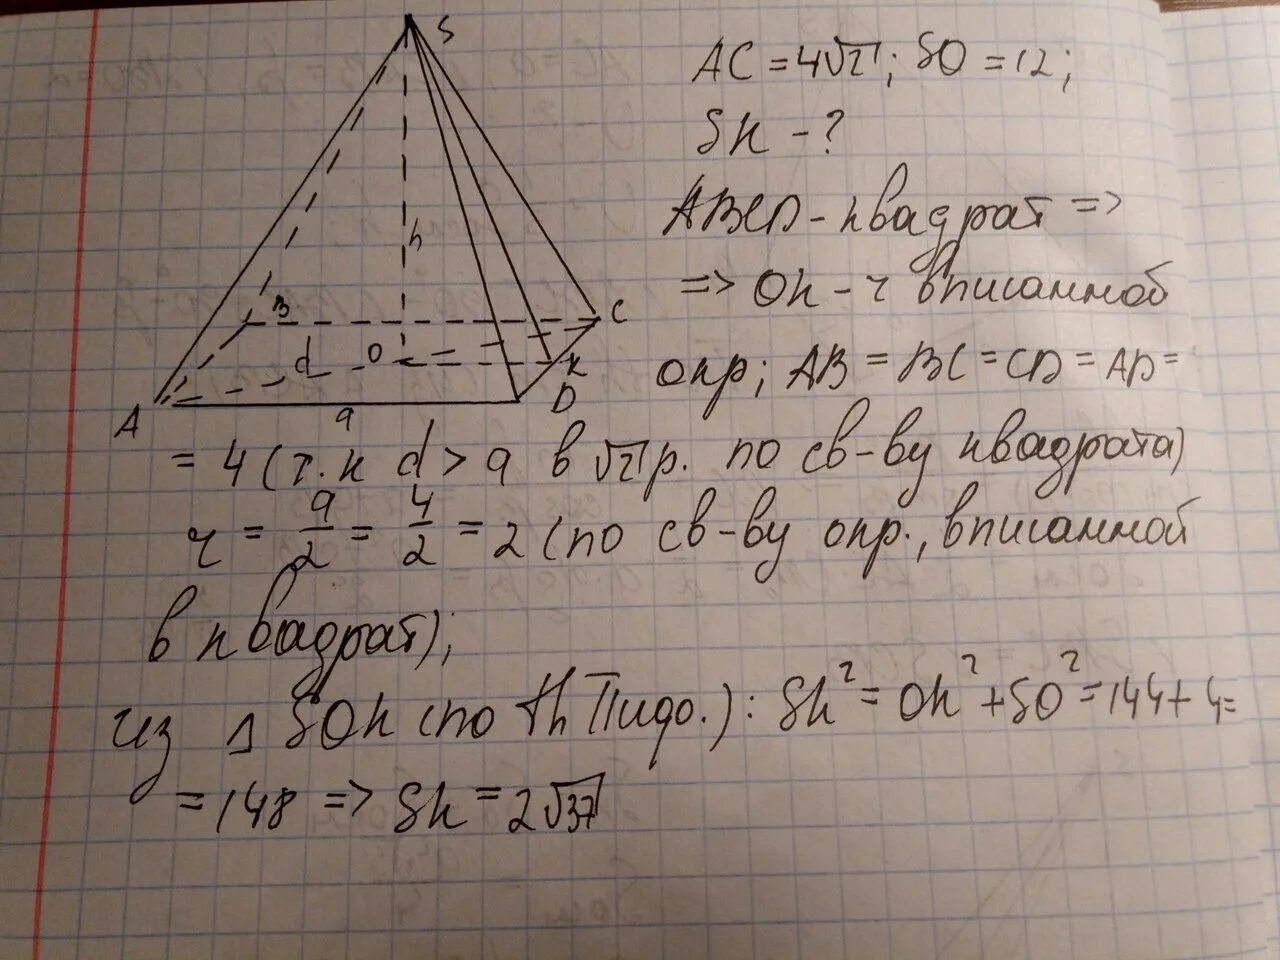 S
AC = 4√2; SO = 12;
SK - ?
h
ABCD - квадрат =>
=> OK - r вписанной
B
C
d
O
K
A
D
a
опр; AB = BC = CD = AD =
= 4 (т.к d > a в √2 р. по св-ву квадрата)
r = a/2 = 4/2 = 2 (по св-ву опр., вписанной
в квадрат);
из △ SOK (по th Пифо.): SK² = OK² + SO² = 144 + 4 =
= 148 => SK = 2√37